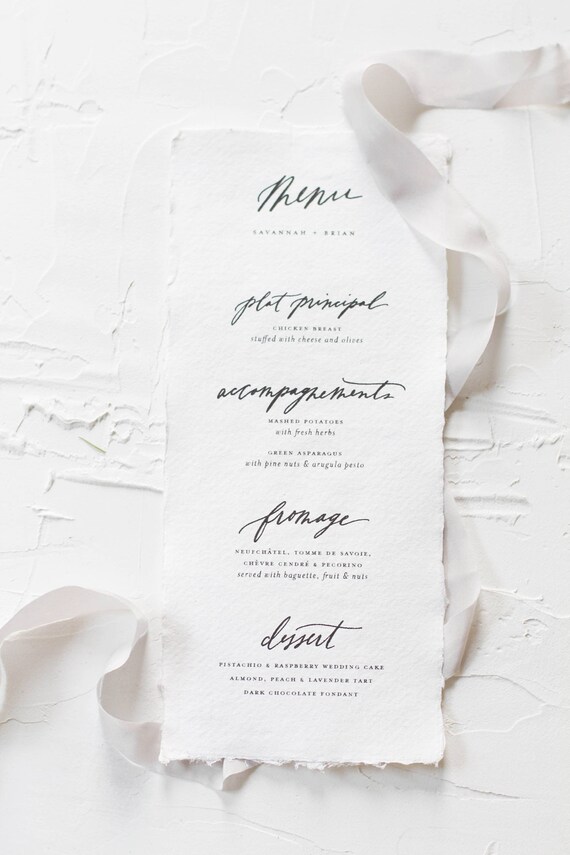 Menu
SAVANNAH + BRIAN
plat principal
CHICKEN BREAST
stuffed with cheese and olives
accompagnements
MASHED POTATOES
with fresh herbs
GREEN ASPARAGUS
with pine nuts & arugula pesto
fromage
NEUFCHÂTEL, TOMME DE SAVOIE,
CHÈVRE CENDRÉ & PECORINO
served with baguette, fruit & nuts
dessert
PISTACHIO & RASPBERRY WEDDING CAKE
ALMOND, PEACH & LAVENDER TART
DARK CHOCOLATE FONDANT